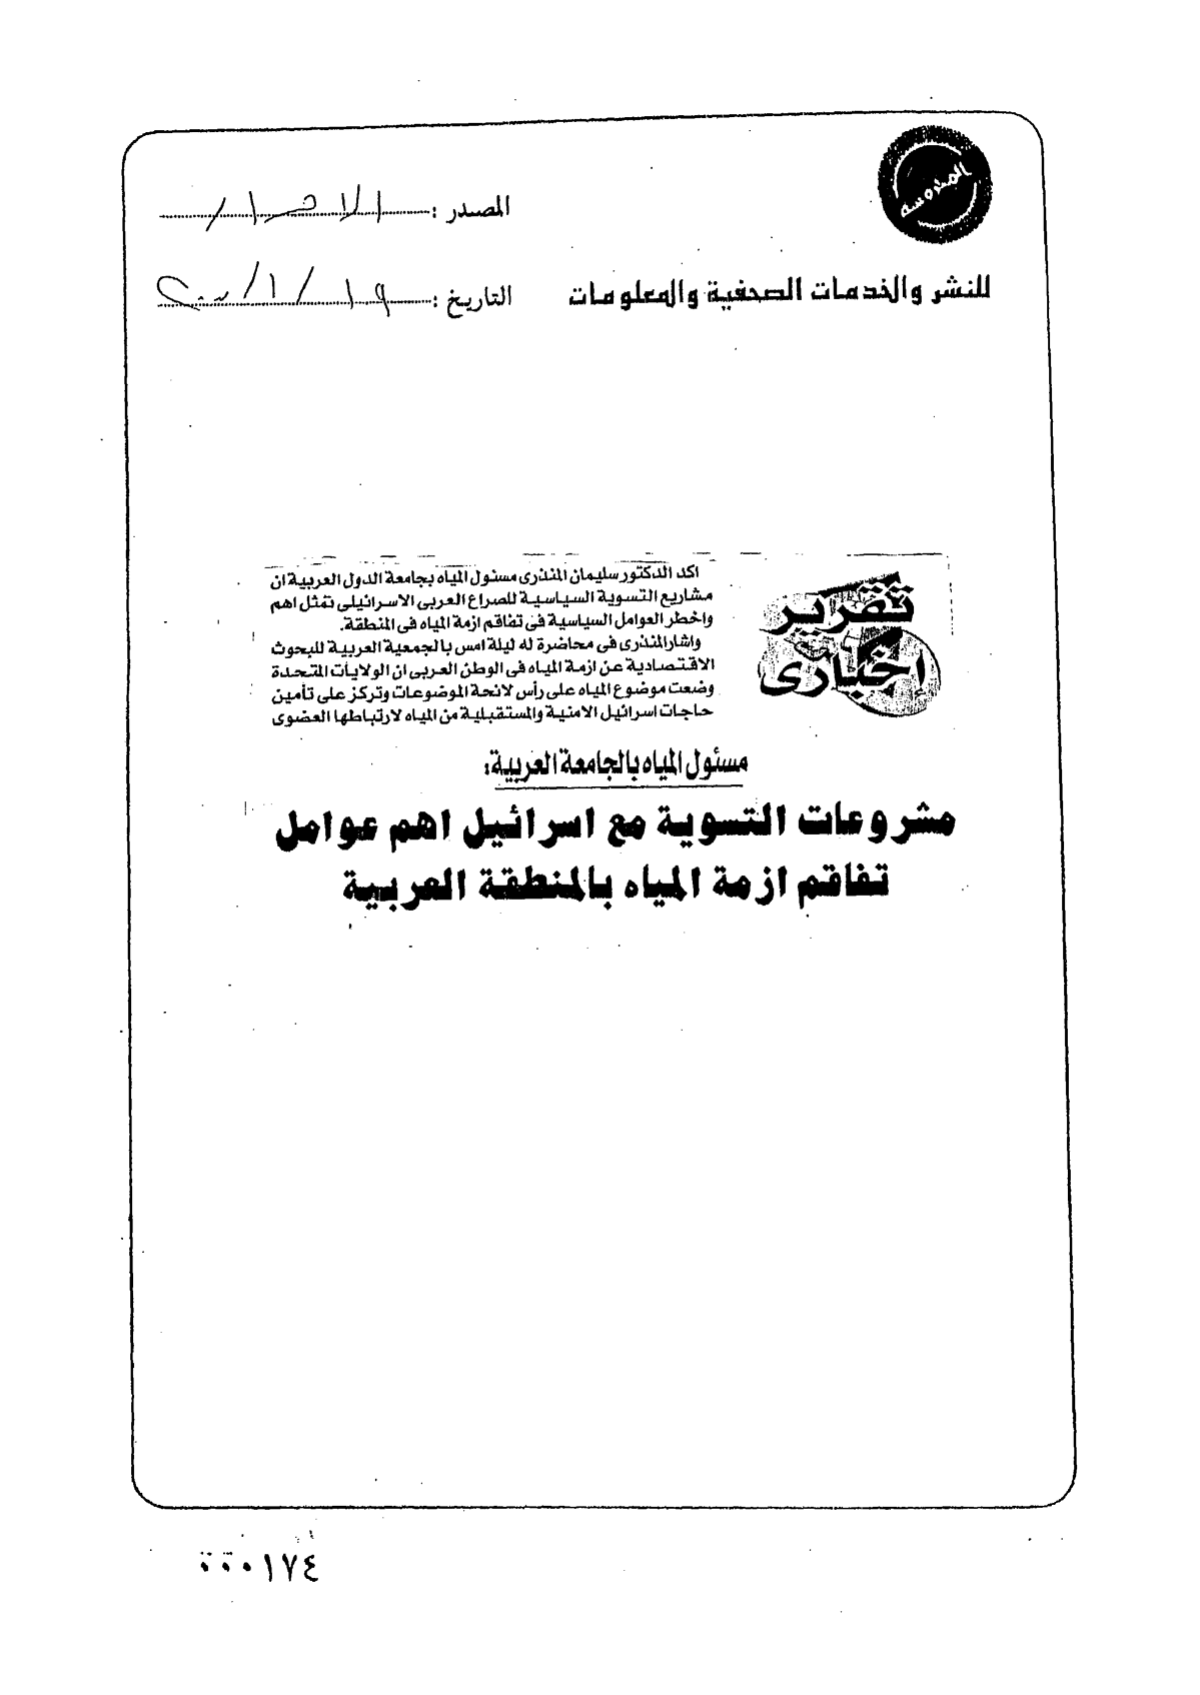 المحروسة
المصدر : الاحرار
للنشر والخدمات الصحفية والمعلومات
التاريخ : ١٩ / ١ / ٢٠٠٠
تقرير
إخبارى
اكد الدكتور سليمان المنذرى مسئول المياه بجامعة الدول العربية ان
مشاريع التسوية السياسية للصراع العربى الاسرائيلى تمثل اهم
واخطر العوامل السياسية فى تفاقم ازمة المياه فى المنطقة.
واشار المنذرى فى محاضرة له ليلة امس بالجمعية العربية للبحوث
الاقتصادية عن ازمة المياه فى الوطن العربى ان الولايات المتحدة
وضعت موضوع المياه على رأس لائحة الموضوعات وتركز على تأمين
حاجات اسرائيل الامنية والمستقبلية من المياه لارتباطها العضوى
مسئول المياه بالجامعة العربية:
مشروعات التسوية مع اسرائيل اهم عوامل
تفاقم ازمة المياه بالمنطقة العربية
٠٠٠١٧٤